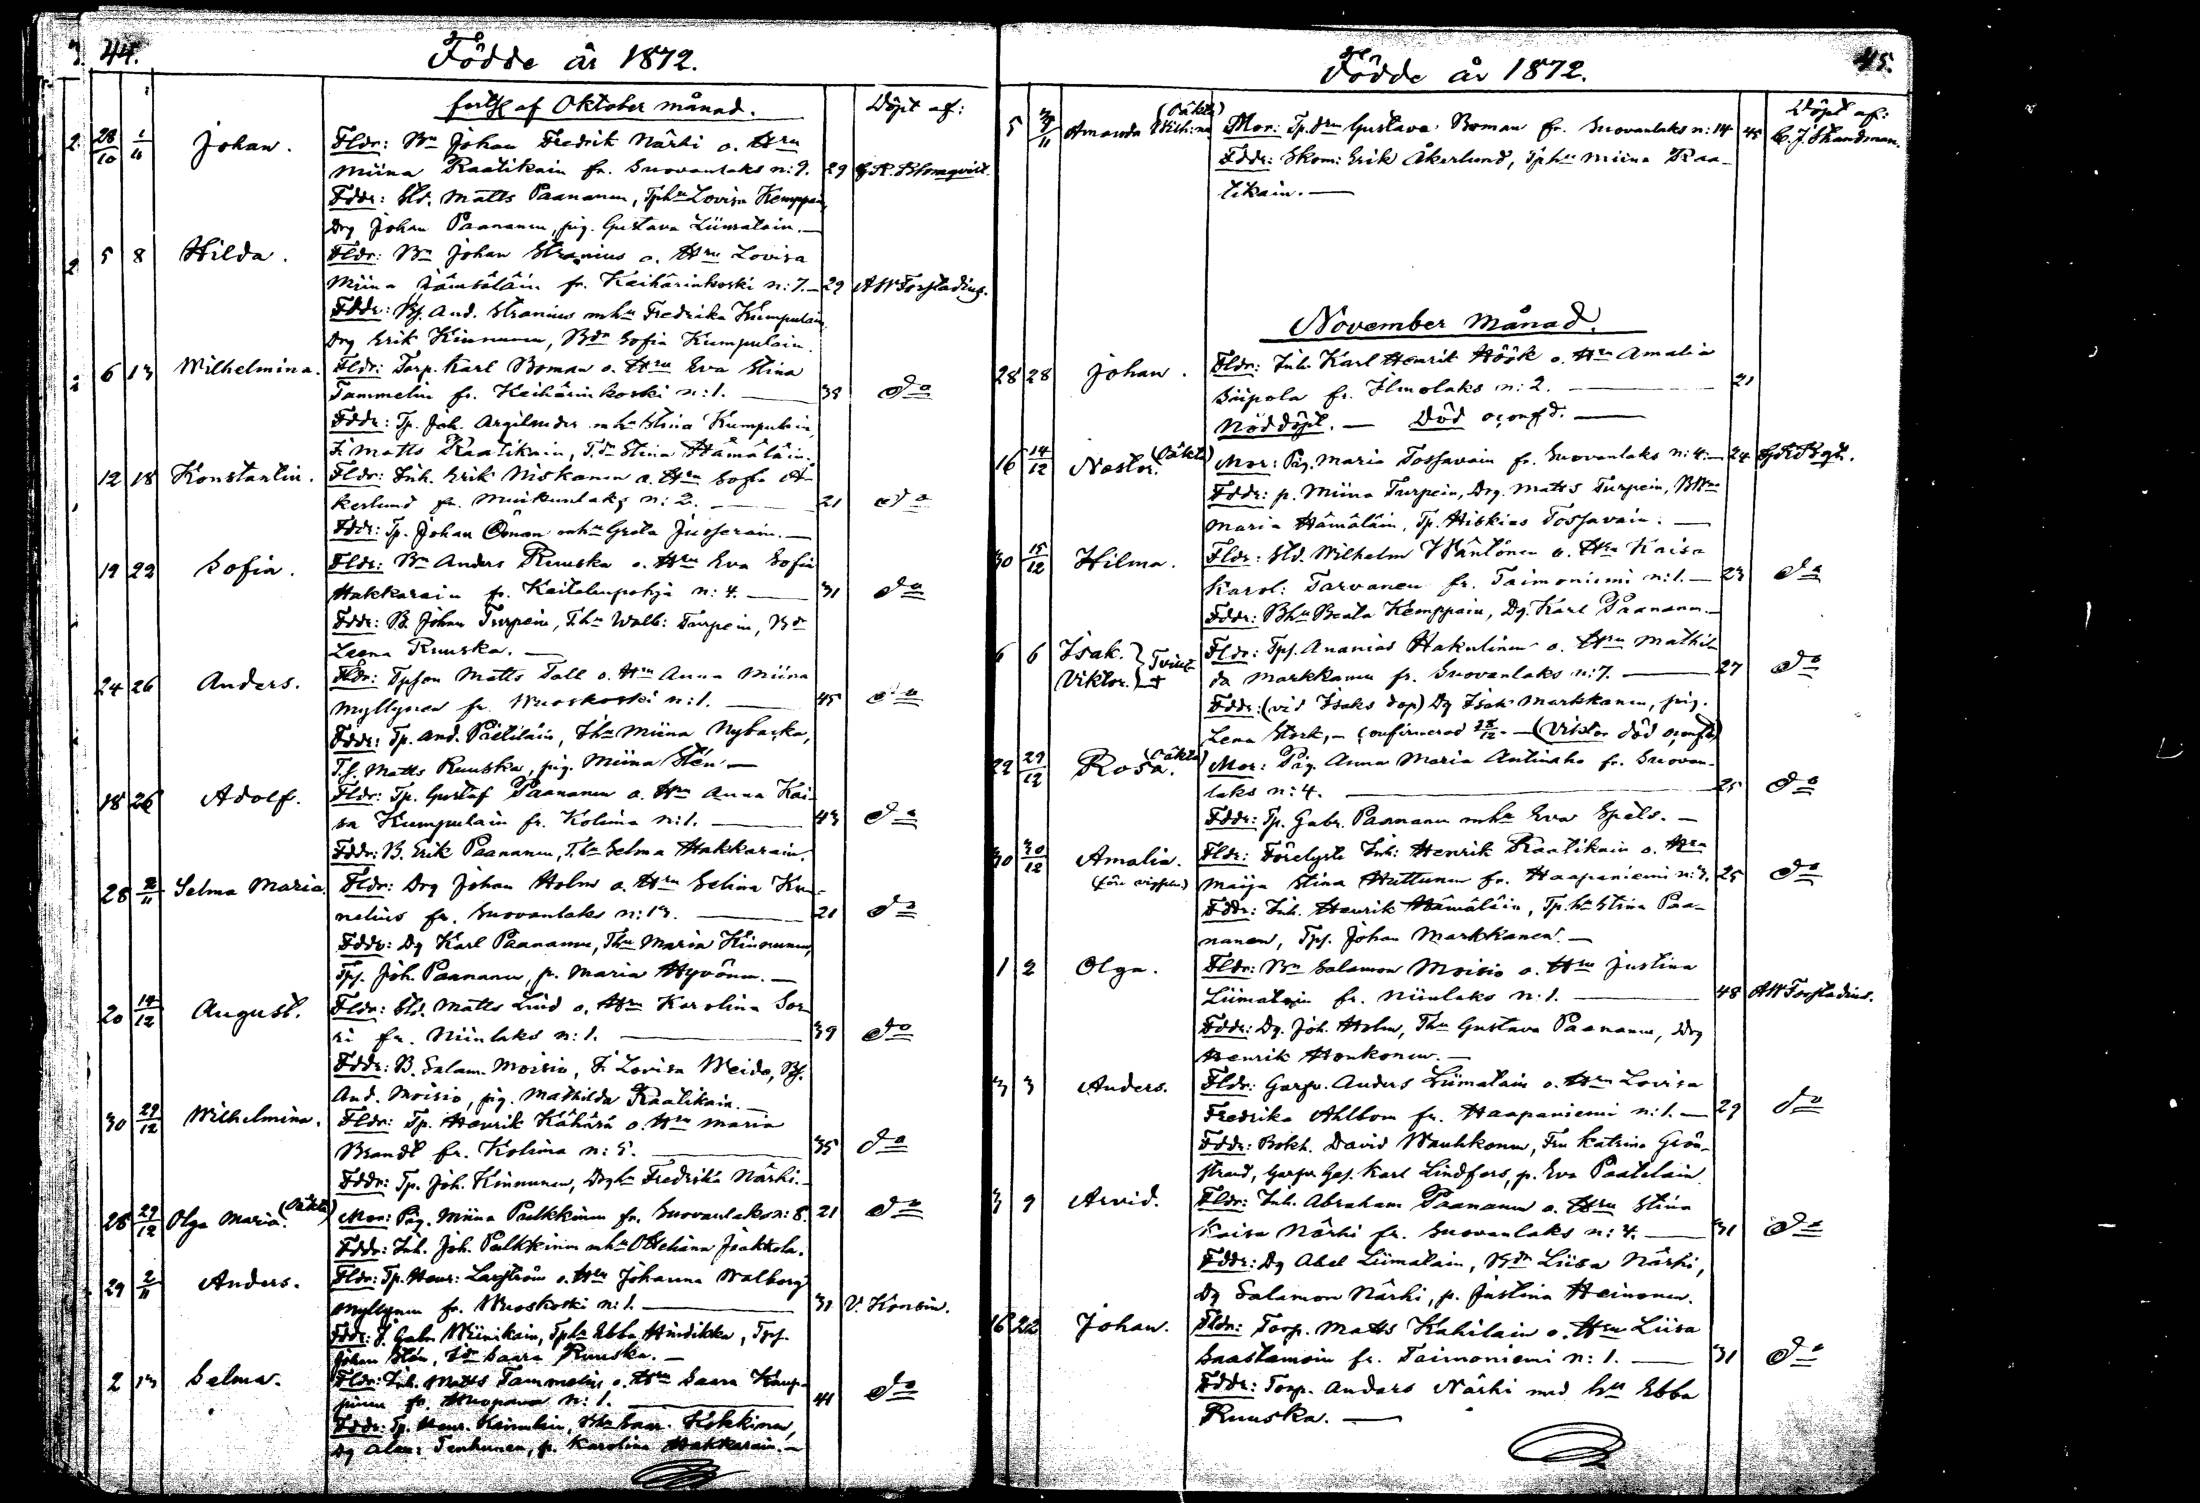 44.
Födde år 1872.
forts. af Oktober månad.
Döpt af:
28/10 1/11 Johan. Fldr: Bn Johan Fredrik Närhi o. Hru
Miina Raatikain fr. Suovanlaks n: 9. 29 G.R. Blomqvist.
Fddr: Sld. Matts Paananen, Tphu Lovisa Kemppain,
Drg Johan Paananen, pig. Gustava Liimatain.—
5 8 Hilda. Fldr: Bn Johan Stranius o. Hru Lovisa
Miina Hämäläin fr. Keihärinkoski n: 7.— 29 AW Forstadius.
Fddr: Bs. And. Stranius mhu Fredrika Kumpulain,
Drg Erik Kinnunen, Bdr Sofia Kumpulain.
6 13 Wilhelmina. Fldr: Torp. Karl Boman o. Hru Eva Stina
Tammelin fr. Keihärinkoski n: 1. — 38 do
Fddr: Tp. Joh. Argilander mhu Stina Kumpulain,
I. Matts Raatikain, T.dr Stina Hämäläin.
12 18 Konstantin. Fldr: Inh. Erik Niskanen o. Hru Sofia Å-
kerlund fr. Muikunlaks n: 2. — 21 do
Fddr: Tp. Johan Öman mhu Greta Jusserain.—
19 22 Sofia. Fldr: Bn Anders Ruuska o. Hru Eva Sofia
Hakkarain fr. Keitelenpohja n: 4. — 31 do
Fddr: B. Johan Turpein, T.hu Walb: Turpein, Bdr
Leena Ruuska. —
24 26 Anders. Fldr: Tpson Matts Tall o. Hru Anna Miina
Myllynen fr. Wuoskoski n: 1. — 45 do
Fddr: Tp. And. Pietiläin, Ihu Miina Nybacka,
T.s. Matts Ruuska, pig. Miina Stén —
18 26 Adolf. Fldr: Tp. Gustaf Paananen o. Hru Anna Kai-
sa Kumpulain fr. Kolima n: 1. — 43 do
Fddr: B. Erik Paananen, T.hu Selma Hakkarain.
28 2/11 Selma Maria. Fldr: Drg Johan Holm o. Hru Selina Kor-
nelius fr. Suovanlaks n: 13. — 21 do
Fddr: Dg Karl Paananen, Thu Maria Kinnunen,
Tps. Joh. Paananen, p. Maria Hyvönen.—
20 14/12 August. Fldr: Sld. Matts Lind o. Hru Karolina Sor-
ri fr. Niinlaks n: 1. — 39 do
Fddr: B. Salam. Moisio, I. Lovisa Weide, Bs.
And. Moisio, pig. Mathilda Raatikain.—
30 29/12 Wilhelmina. Fldr: Tp. Henrik Kähärä o. Hru Maria
Brandt fr. Kolima n: 5. — 35 do
Fddr: Tp. Joh. Kinnunen, Drghu Fredrika Närhi.—
28 29/12 Olga Maria. (Oäkta) Mor: Pig. Miina Pulkkinen fr. Suovanlaks n: 8. 21 do
Fddr: Inh. Joh. Pulkkinen mhu Ottiliana Jaakkola.
29 2/11 Anders. Fldr: Tp. Henr: Lagström o. Hru Johanna Walborg
Myllynen fr. Wuoskoski n: 1. — 31 V. Konsin.
Fddr: I. Gabr. Wiinikain, Tphu Ebba Hindikka, Tps.
Johan Stén, Idr Saara Ruuska. —
2 13 Selma. Fldr: Inh. Matts Tammelin o. Hru Saara Kaup-
pinen fr. Huopana n: 1. — 41 do
Fddr: Tp. Henr. Keinäin, Bhu Saar. Kokkinen,
Dg Alex: Tenhunen, p. Karolina Hakkarain.—
45.
Födde år 1872.
Döpt af:
5 3/11 Amanda Wilh:na (Oäkta) Mor: Tp.dru Gustava Boman fr. Suovanlaks n: 14 45 C. J. Strandman.
Fddr: Skom: Erik Åkerlund, Tphu Miina Raa-
tikain. —
November Månad.
28 28 Johan. Fldr: Inh. Karl Henrik Höök o. Hru Amalia
Siipola fr. Ilmolaks n: 2. — 21
Nöddöpt. — Död oconfd. —
16 14/12 Nestor. (Oäkta) Mor: Pig. Maria Tossavain fr. Suovanlaks n: 4.— 24 GRBqt.
Fddr: p. Miina Turpein, Drg. Matts Turpein, BHu
Maria Hämäläin, Tp. Hiskias Tossavain. —
30 15/12 Hilma. Fldr: Sld. Wilhelm Wäntönen o. Hru Kaisa
Karol: Tarvanen fr. Taimoniemi n: 1.— 23 do
Fddr: Bhu Beata Kemppain, Dg. Karl Paananen.—
6 6 Isak. Viktor. } Tvill. + Fldr: Tps. Ananias Hakulinen o. Hru Mathil-
da Markkanen fr. Suovanlaks n: 7. — 27 do
Fddr: (vid Isaks dop) Dg Isak Markkanen, pig.
Lena Stork,— confirmerad 28/12.—(Viktor död oconfd)
22 29/12 Rosa. (Oäkta) Mor: Pig. Anna Maria Autinaho fr. Suovan-
laks n: 4. — 25 do
Fddr: Tp. Gabr. Paananen mhu Eva Spels. —
30 30/12 Amalia. Fldr: Förelyste Inh: Henrik Raatikain o. Hru
(före vigseln) Maija Stina Huttunen fr. Haapaniemi n: 3. 25 do
Fddr: Inh. Henrik Hämäläin, Tp.hu Stina Paa-
nanen, Tps. Johan Markkanen. —
1 2 Olga. Fldr: Bn Salamon Moisio o. Hru Justina
Liimatain fr. Niinlaks n: 1. — 48 AW Forstadius.
Fddr: Dg. Joh. Holm, Thu Gustava Paananen, Drg
Henrik Honkonen. —
3 3 Anders. Fldr: Garfv. Anders Liimatain o. Hru Lovisa
Fredrika Ahlbom fr. Haapaniemi n: 1.— 29 do
Fddr: Bokh. David Wauhkonen, Fru Katrina Grön-
strand, Garfv. Ges. Karl Lindfors, p. Eva Paatelain.
3 9 Arvid. Fldr: Inh. Abraham Paananen o. Hru Stina
Kaisa Närhi fr. Suovanlaks n: 4. — 31 do
Fddr: Dg Abel Liimatain, Bdr Liisa Närhi,
Dg Salamon Närhi, p. Justina Heinonen.
16 22 Johan. Fldr: Torp. Matts Kahilain o. Hru Liisa
Saastamoin fr. Taimoniemi n: 1. — 31 do
Fddr: Torp. Anders Närhi med hu Ebba
Ruuska. —